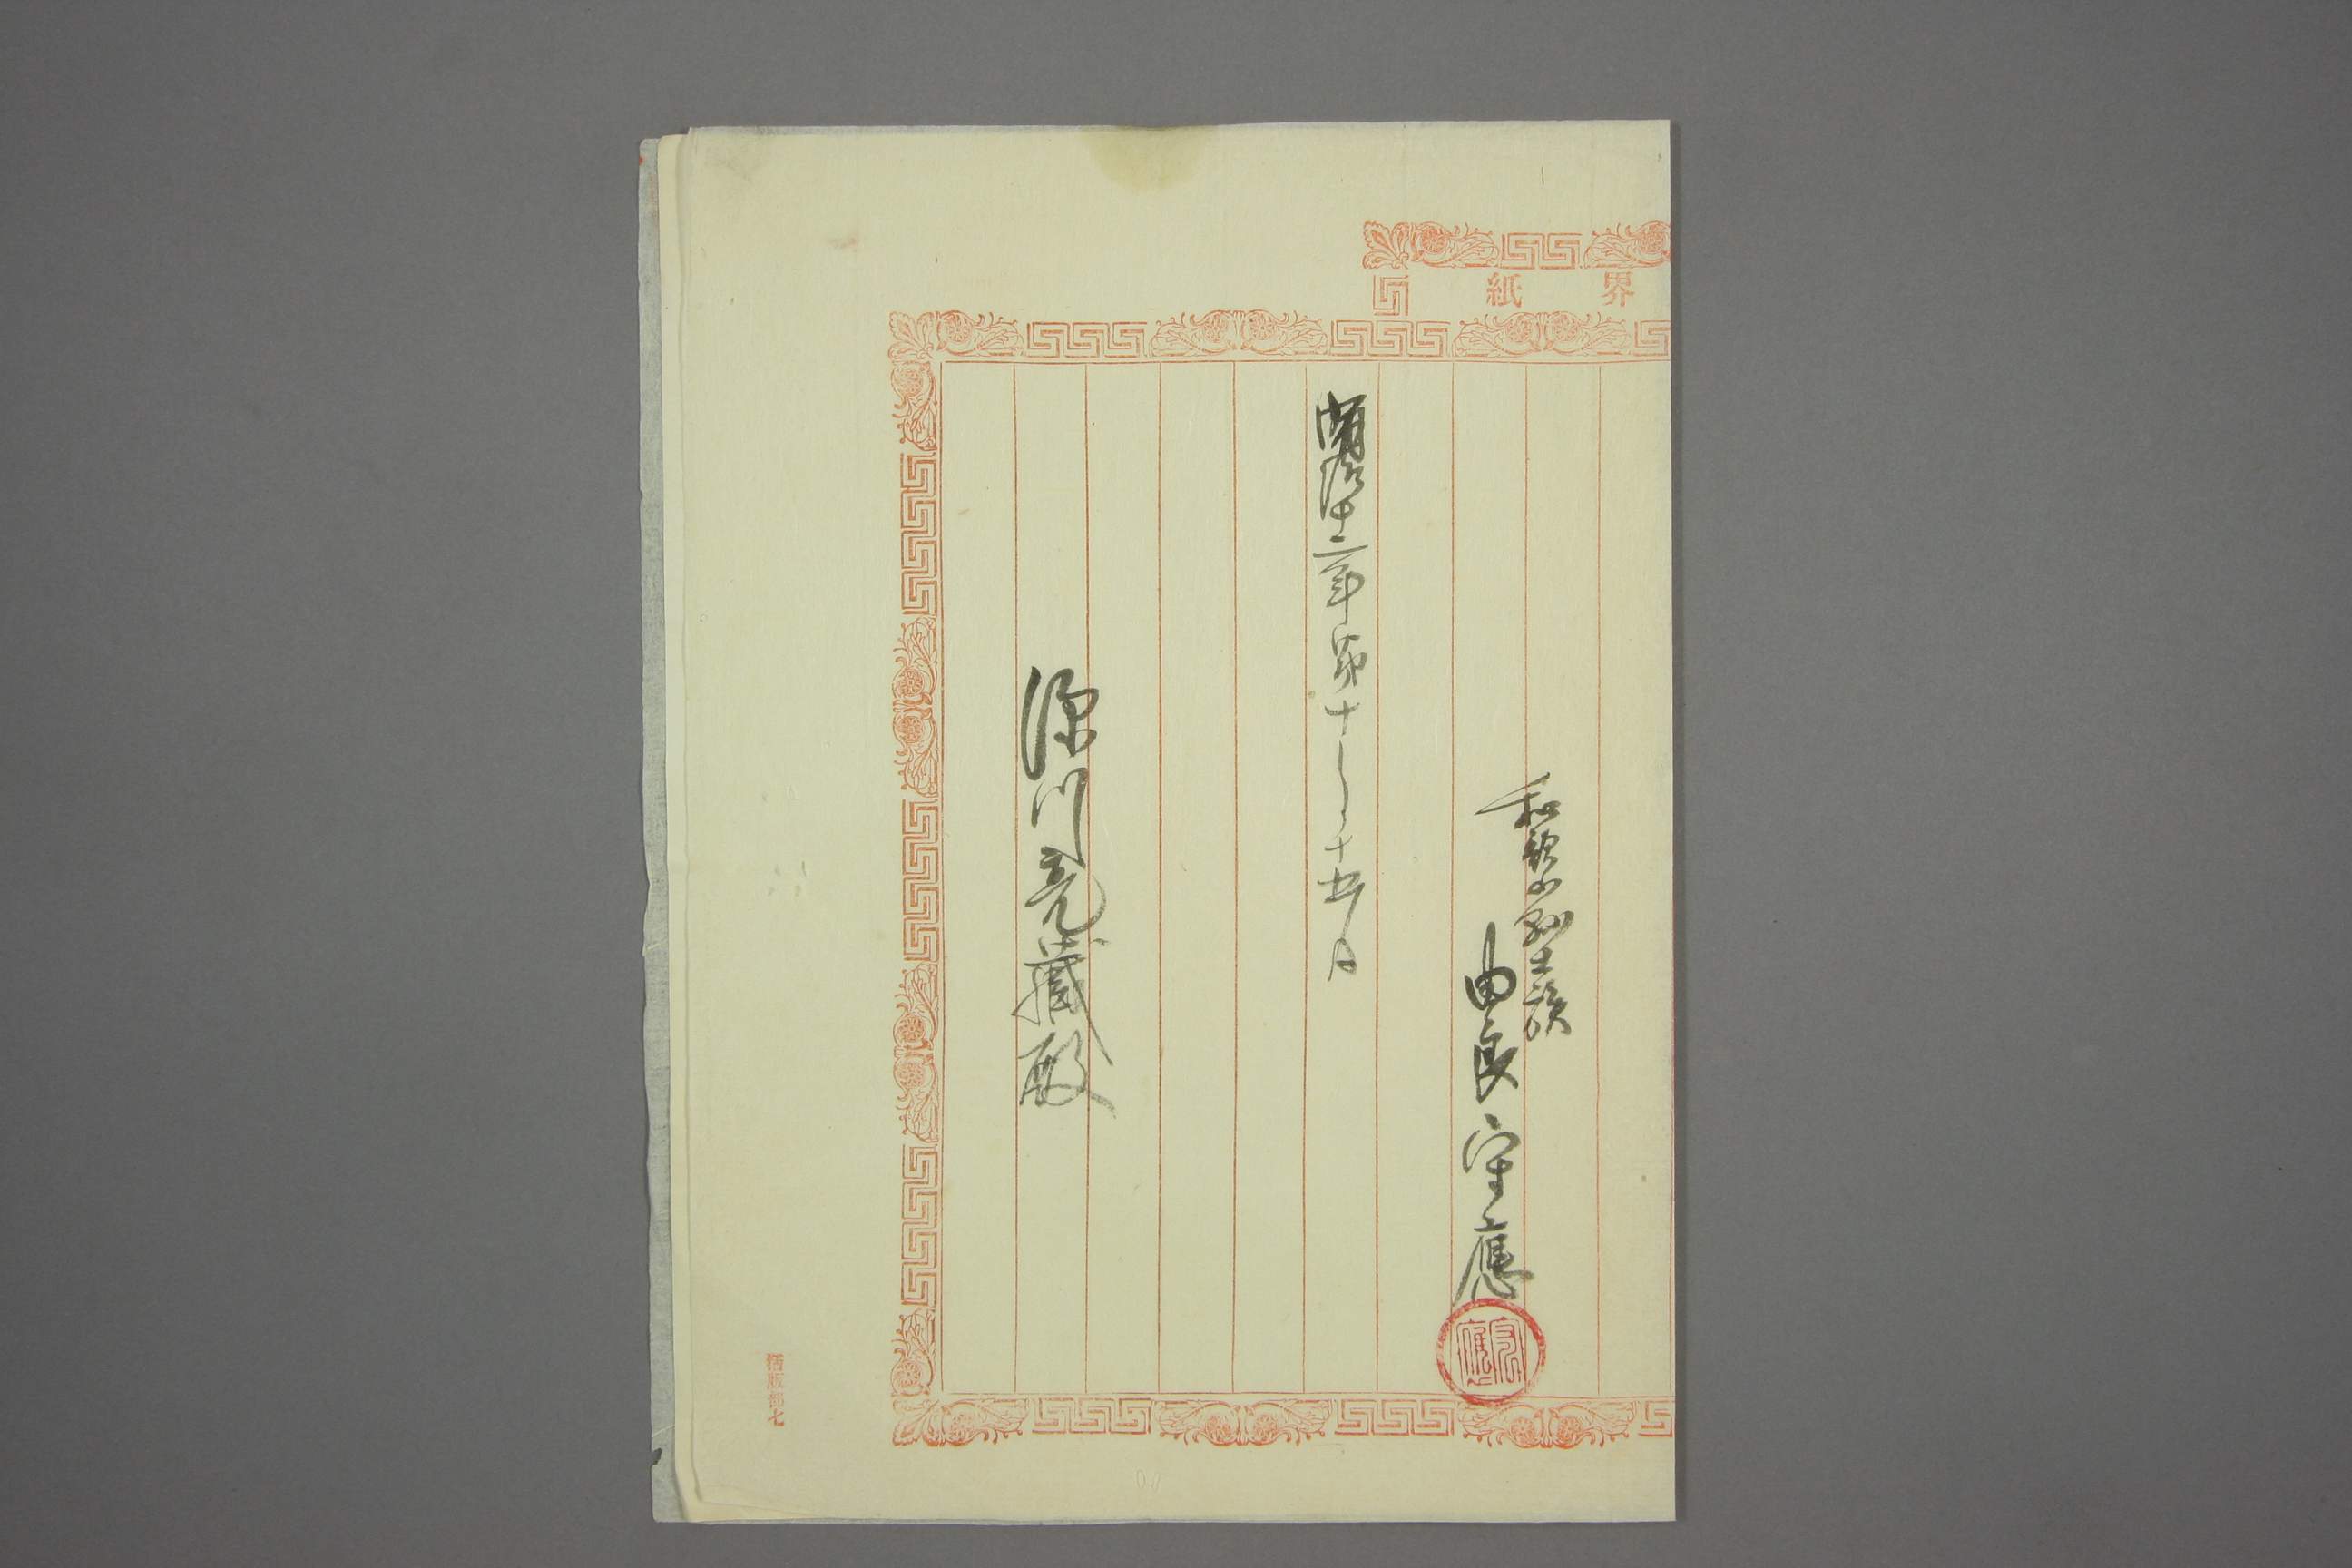 界紙
和歌山縣士族
由良守應
明治十二年第十一月十五日
深川亮藏殿